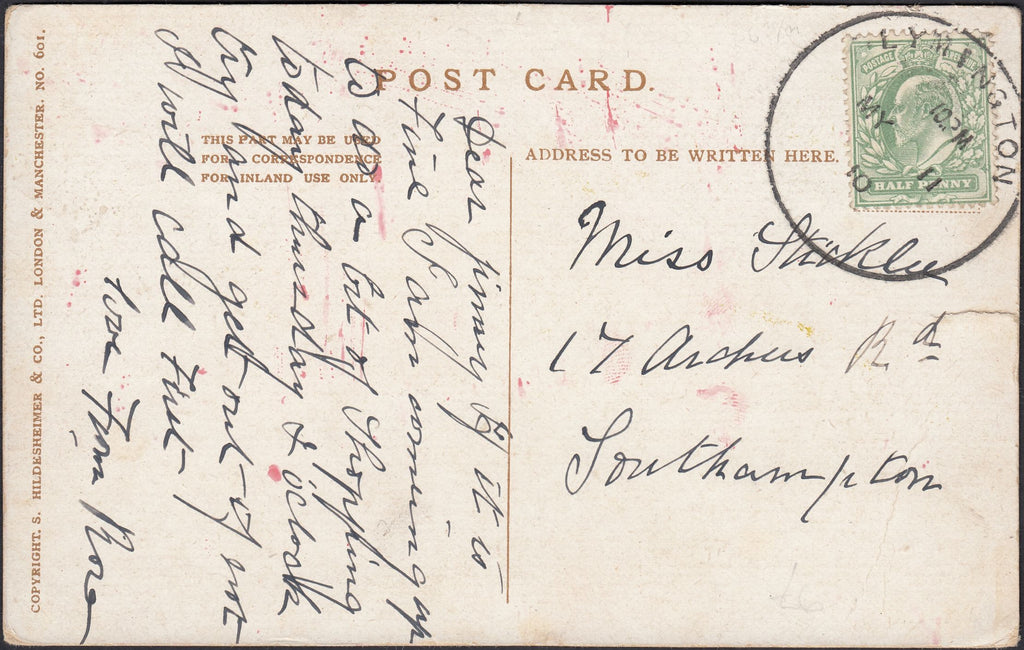 POST CARD.
THIS PART MAY BE USED
FOR CORRESPONDENCE
FOR INLAND USE ONLY.
ADDRESS TO BE WRITTEN HERE.
COPYRIGHT. S. HILDESHEIMER & CO., LTD. LONDON & MANCHESTER. NO. 601.
LYMINGTON
MY 11
10
POSTAGE
HALF PENNY
Dear jinny If it is
Fine I am coming up
to do a bit of Shopping
today thursday & oclock
try and get out if not
I will call first
love from Rose
Miss Sticklee
17 Archers Rd
Southampton